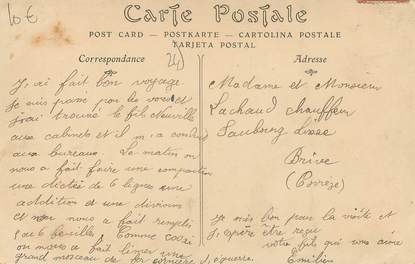 10 €
Carte Postale
POST CARD — POSTKARTE — CARTOLINA POSTALE
TARJETA POSTAL
Correspondance
Adresse
J'ai fait bon voyage
Je suis passé par les
j'ai trouvé le fils
aux cabinets et il m'a conduit
aux bureaux. Le matin on
nous a fait faire une composition
une dictée de 6 lignes une
addition et une division
et nous a fait remplir
6 feuilles. Comme
on nous a fait limer une
grand morceau de fer cornière à l'équerre.
Madame et Monsieur
Lachaud chauffeur
Faubourg
Brive
(Corrèze)
Je suis bon pour la visite et
j'espère être reçu
votre fils qui vous aime
Emilien